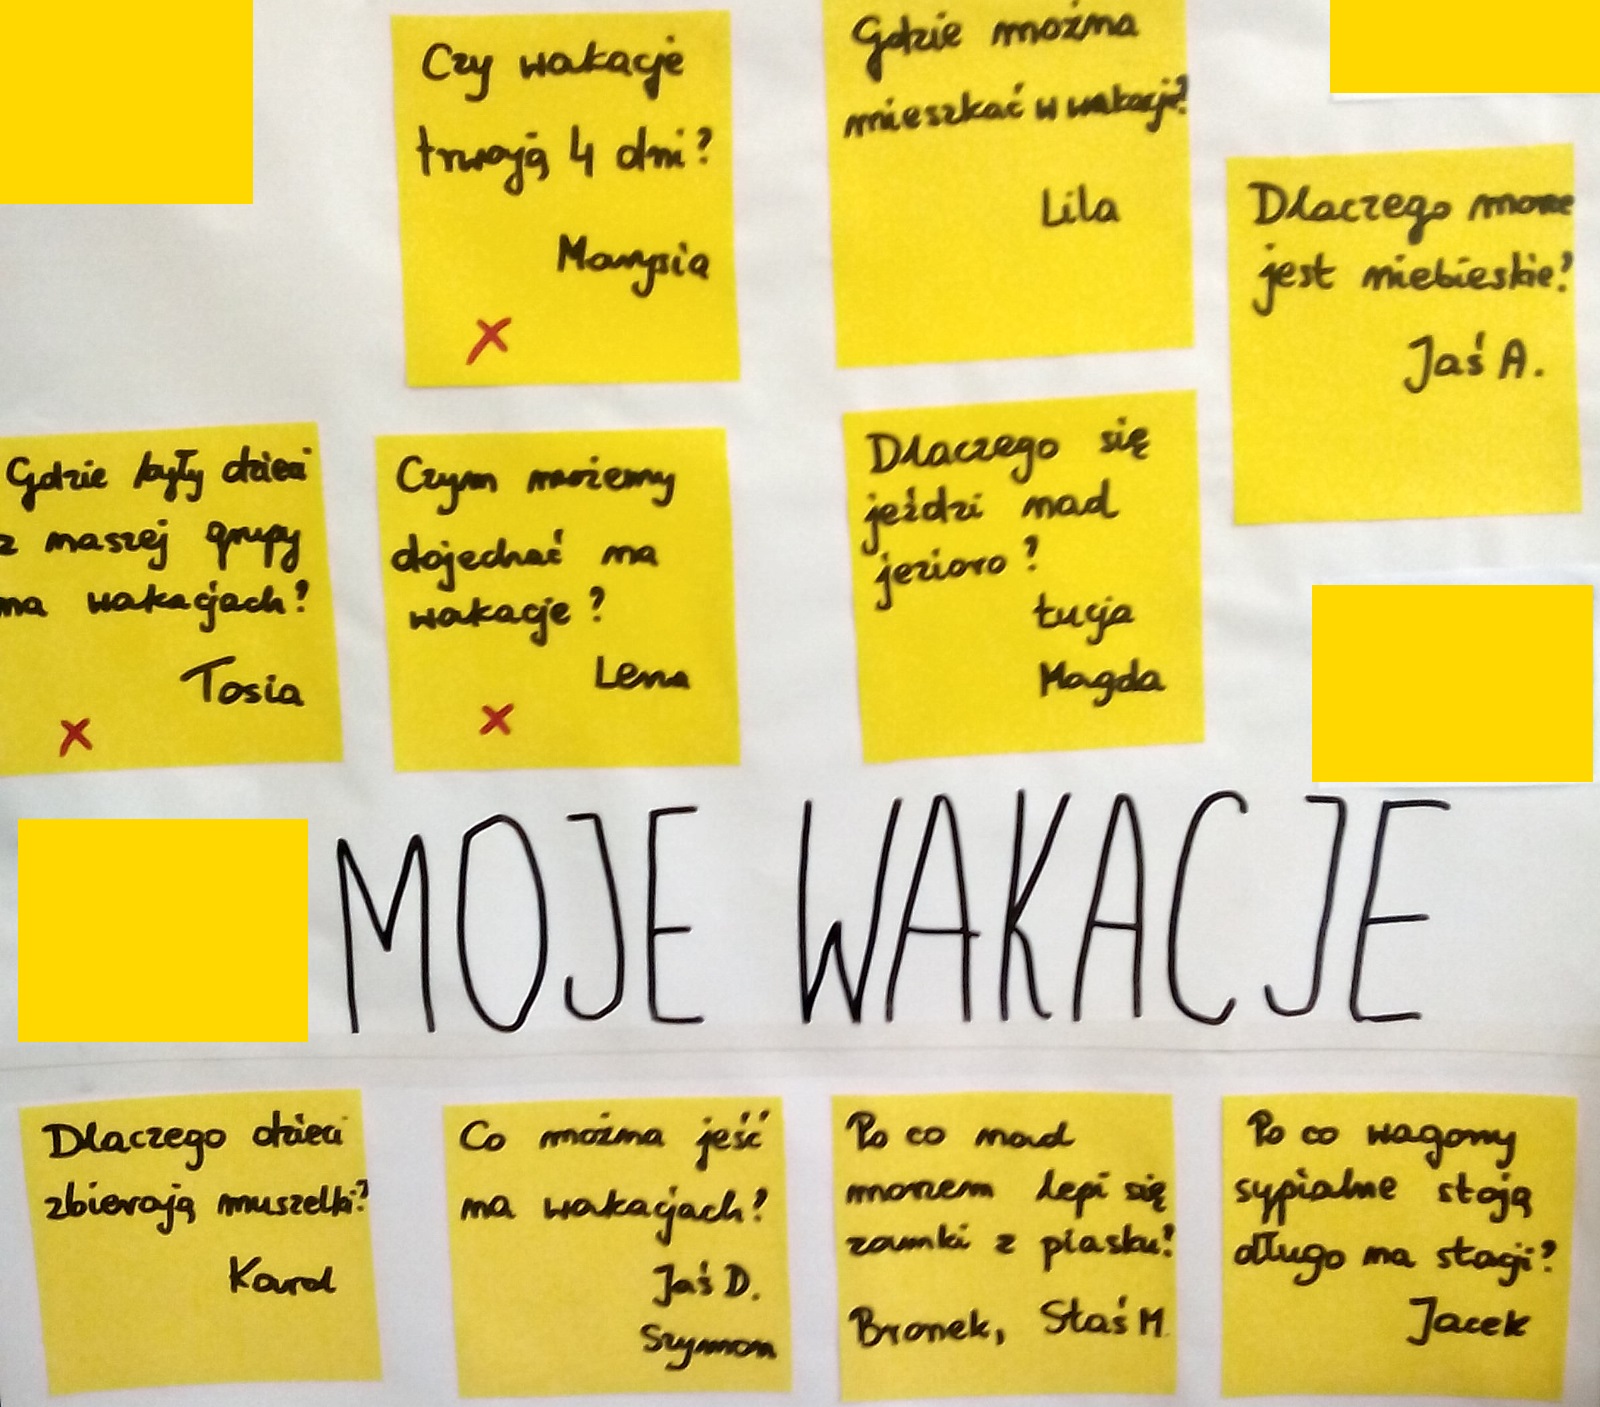 Czy wakacje
trwają 4 dni?
Marysia
Gdzie można
mieszkać w wakacje?
Lila
Dlaczego morze
jest niebieskie?
Jaś A.
Gdzie były dzieci
z naszej grupy
na wakacjach?
Tosia
Czym możemy
dojechać na
wakacje?
Lena
Dlaczego się
jeździ nad
jezioro?
Łucja
Magda
MOJE WAKACJE
Dlaczego dzieci
zbierają muszelki?
Karol
Co można jeść
na wakacjach?
Jaś D.
Szymon
Po co nad
morzem lepi się
zamki z piasku?
Bronek, Staś M.
Po co wagony
sypialne stoją
długo na stacji?
Jacek